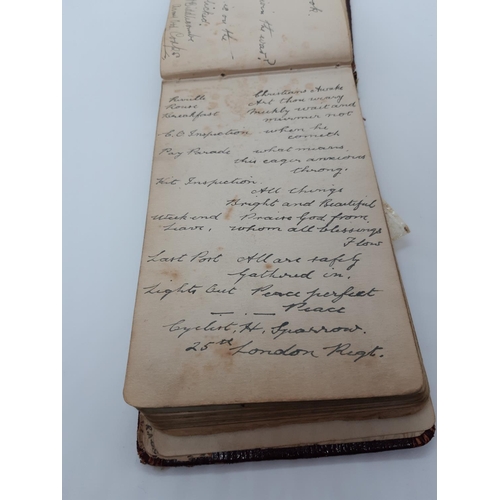 Reveille Christians Awake
Rouse Art thou weary
Breakfast Meekly wait and
murmer not
C.O. Inspection when he
cometh
Pay Parade what means
this eager anxious
throng.
Kit Inspection.
All things
Bright and Beautiful
Week end Praise God from
Leave, whom all blessings
Flow
Last Post All are safely
Gathered in.
Lights Out Peace perfect
Peace
Cyclist, H. Sparrow.
25th London Regt.